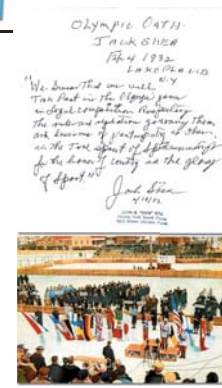 OLYMPIC OATH-
JACK SHEA
Feb 4 1932
LAKE PLACID
N.Y
"We swear that we will
Take Part in the Olympic games
in loyal competition Respecting
the rules and regulations governing them
and desirous of participating in them
in the True spirit of Sportsmanship
for the honor of country and the glory
of Sport."
Jack Shea